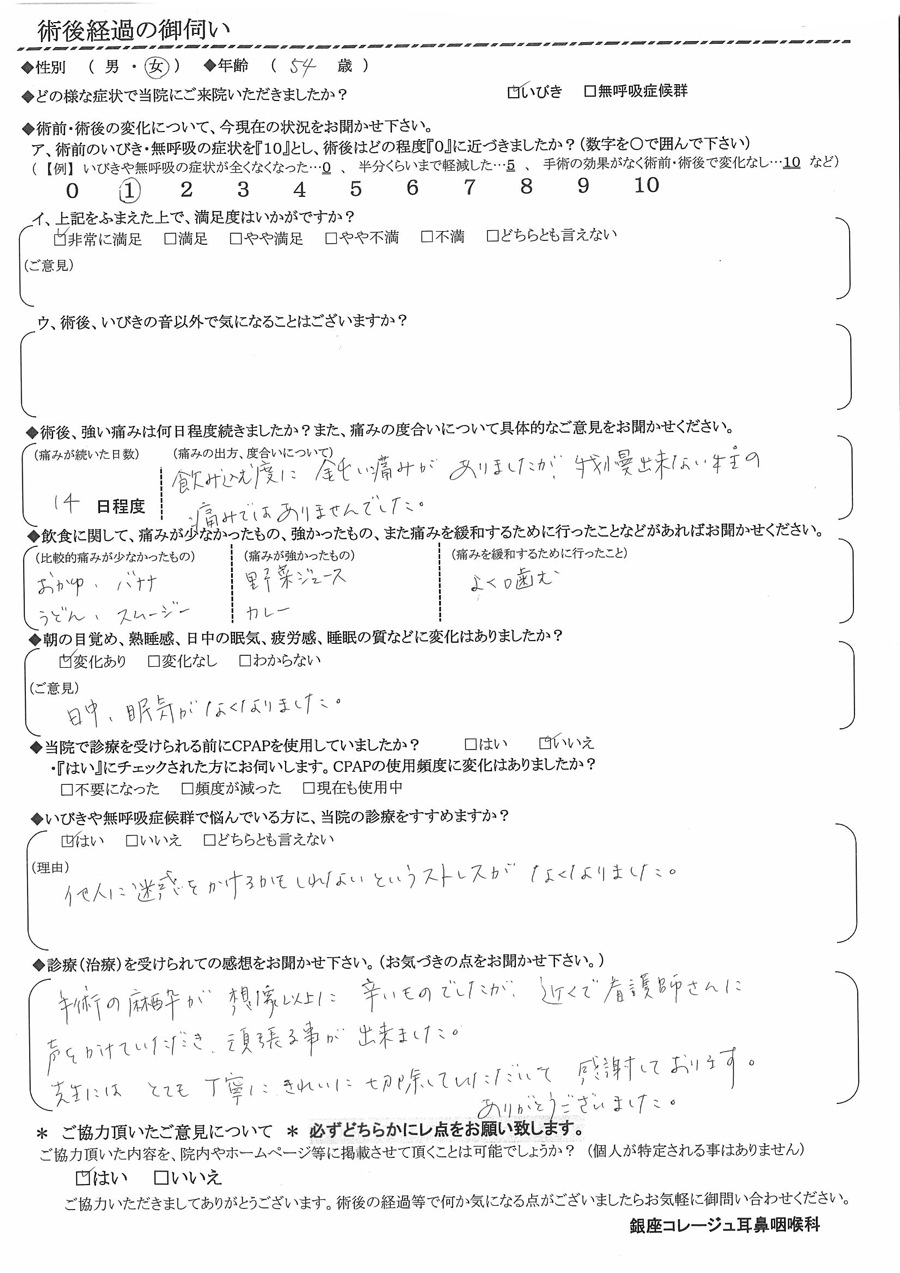 術後経過の御伺い
◆性別 （ 男 ・ 女 ） ◆年齢 （ 54 歳 ）
◆どの様な症状で当院にご来院いただきましたか？ ☑いびき □無呼吸症候群
◆術前・術後の変化について、今現在の状況をお聞かせ下さい。
ア、術前のいびき・無呼吸の症状を『10』とし、術後はどの程度『0』に近づきましたか？（数字を〇で囲んで下さい）
（ 【例】 いびきや無呼吸の症状が全くなくなった…0 、 半分くらいまで軽減した…5 、 手術の効果がなく術前・術後で変化なし…10 など）
0 1 2 3 4 5 6 7 8 9 10
イ、上記をふまえた上で、満足度はいかがですか？
☑非常に満足 □満足 □やや満足 □やや不満 □不満 □どちらとも言えない
（ご意見）
ウ、術後、いびきの音以外で気になることはございますか？
◆術後、強い痛みは何日程度続きましたか？また、痛みの度合いについて具体的なご意見をお聞かせください。
（痛みが続いた日数） （痛みの出方、度合いについて）
飲み込む度に 鈍い痛みが ありましたが、我慢出来ない程の
14 日程度 痛みではありませんでした。
◆飲食に関して、痛みが少なかったもの、強かったもの、また痛みを緩和するために行ったことなどがあればお聞かせください。
（比較的痛みが少なかったもの） （痛みが強かったもの） （痛みを緩和するために行ったこと）
おかゆ、バナナ 野菜ジュース よく噛む
うどん、スムージー カレー
◆朝の目覚め、熟睡感、日中の眠気、疲労感、睡眠の質などに変化はありましたか？
☑変化あり □変化なし □わからない
（ご意見）
日中、眠気がなくなりました。
◆当院で診療を受けられる前にCPAPを使用していましたか？ □はい ☑いいえ
・『はい』にチェックされた方にお伺いします。CPAPの使用頻度に変化はありましたか？
□不要になった □頻度が減った □現在も使用中
◆いびきや無呼吸症候群で悩んでいる方に、当院の診療をすすめますか？
☑はい □いいえ □どちらとも言えない
（理由）
他人に迷惑をかけるかもしれないというストレスが なくなりました。
◆診療（治療）を受けられての感想をお聞かせ下さい。（お気づきの点をお聞かせ下さい。）
手術の麻酔が 想像以上に 辛いものでしたが、近くで看護師さんに
声をかけていただき、頑張る事が 出来ました。
先生には とても 丁寧に きれいに 切除していただいて 感謝しております。
ありがとうございました。
＊ ご協力頂いたご意見について ＊ 必ずどちらかにレ点をお願い致します。
ご協力頂いた内容を、院内やホームページ等に掲載させて頂くことは可能でしょうか？ （個人が特定される事はありません）
☑はい □いいえ
ご協力いただきましてありがとうございます。術後の経過等で何か気になる点がございましたらお気軽に御問い合わせください。
銀座コレージュ耳鼻咽喉科